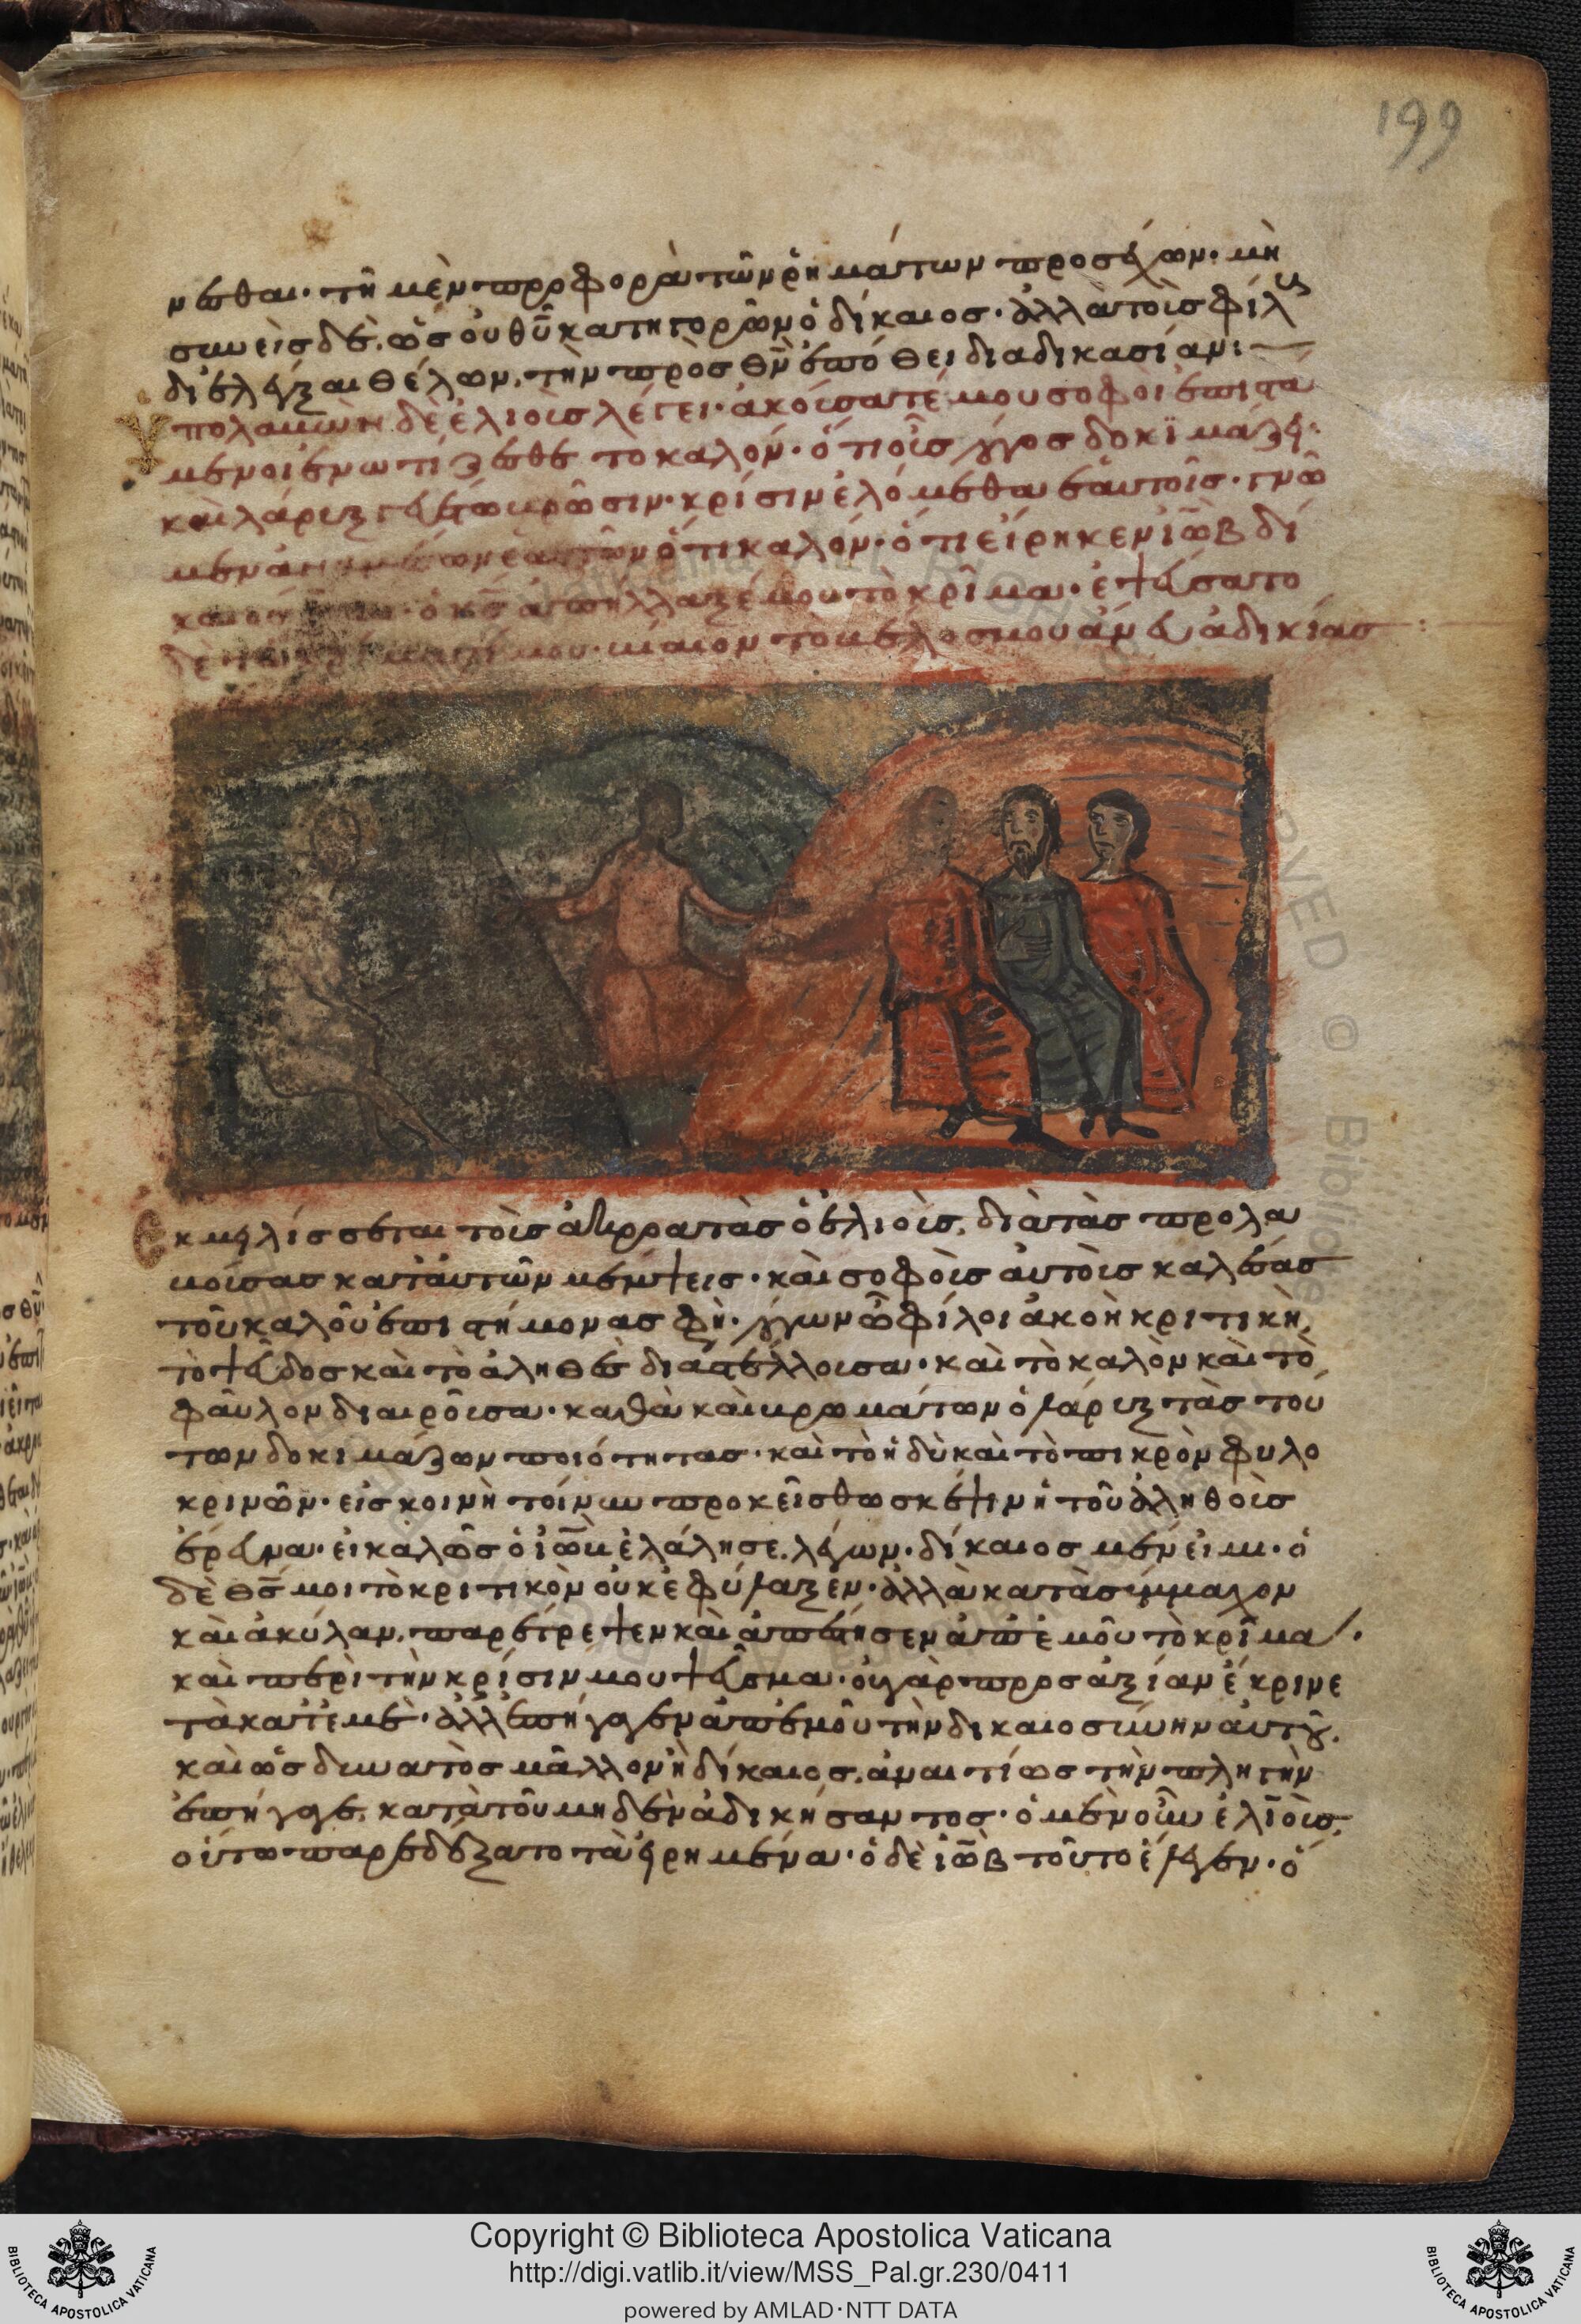 199
νεσθαι· τῇ μὲν προφορᾷ τῶν ῥημάτων προσέχων· μὴ
συνεὶς δὲ, ὡς οὐ θῡ κατηγορῶν ὁ δίκαιος· ἀλλὰ τοῖς φίλοις
διελέγξαι θέλων, τὴν πρὸς θν̄ ὑπόθει διαδικασίαν:
Ὑπολαβὼν δὲ ἐλιοῦς λέγει· ἀκούσατέ μου σοφοὶ ἐπιστά
μενοι ἐνωτίζεσθε τὸ καλόν· ὅτι οὖς λόγους δοκιμάζει·
καὶ λάρυγξ γεύεται βρῶσιν· κρίσιν ἑλώμεθα ἑαυτοῖς· γνῶ
μεν ἀνὰ μέσον ἑαυτῶν ὅτι καλόν· ὅτι εἴρηκεν ἰὼβ δί
καιός εἰμι· ὁ κς̄ ἀπήλλαξέ μου τὸ κρῖμα· ἐψεύσατο
δὲ τῷ κρίματί μου· βίαιον τὸ βέλος μου ἄνευ ἀδικίας
Ἐκμειλίσσεται τοὺς ἀκροατὰς ὁ ἐλιοῦς, διὰ τὰς προλα
βούσας κατ' αὐτῶν μέμψεις· καὶ σοφοὺς αὐτοὺς καλέσας
τοῦ καλοῦ ἐπιστήμονάς φη· λόγων ὦ φίλοι ἀκοὴ κριτικὴ,
τὸ ψεῦδος καὶ τὸ ἀληθὲς διαστέλλουσα· καὶ τὸ καλὸν καὶ τὸ
φαῦλον διαιροῦσα· καθὰ καὶ βρωμάτων ὁ λάρυγξ τὰς τού
των δοκιμάζων ποιότητας· καὶ τὸ ἡδὺ καὶ τὸ πικρὸν φυλο
κρινῶν· εἰς κοινὴ τοίνυν προκείσθω σκέψιν ἡ τοῦ ἀληθοῦς
ἔρευνα· εἰ καλῶς ὁ ἰὼβ ἐλάλησε, λέγων· δίκαιος μέν εἰμι· ὁ
δὲ θς̄ μοι τὸ κριτικὸν οὐκ ἐφύλαξεν· ἀλλὰ κατὰ σύμμαχον
καὶ ἀκύλαν, παρέτρεψεν καὶ ἀπέστησεν ἀπ' ἐμοῦ τὸ κρῖμα·
καὶ περὶ τὴν κρίσιν μου ψεῦσμα· οὐ γὰρ πρὸς ἀξίαν ἔκρινε
τὰ κατ' ἐμὲ· ἀλλ' ἐπήγαγεν ἀπ' ἐμοῦ τὴν δικαιοσύνην αὐτοῦ,
καὶ ὡς δυνατὸς μᾶλλον ἢ δίκαιος, ἀναιτίως τὴν πληγὴν
ἐπήγαγε, κατὰ τοῦ μηδὲν ἀδικήσαντος· ὁ μὲν οὖν ἐλιοῦς,
οὕτω παρεδέξατο τὰ εἰρημένα· ὁ δὲ ἰὼβ τοῦτο ἔλεγεν· ὁ
Copyright © Biblioteca Apostolica Vaticana
http://digi.vatlib.it/view/MSS_Pal.gr.230/0411
powered by AMLAD·NTT DATA
BIBLIOTECA APOSTOLICA VATICANA
BIBLIOTECA APOSTOLICA VATICANA